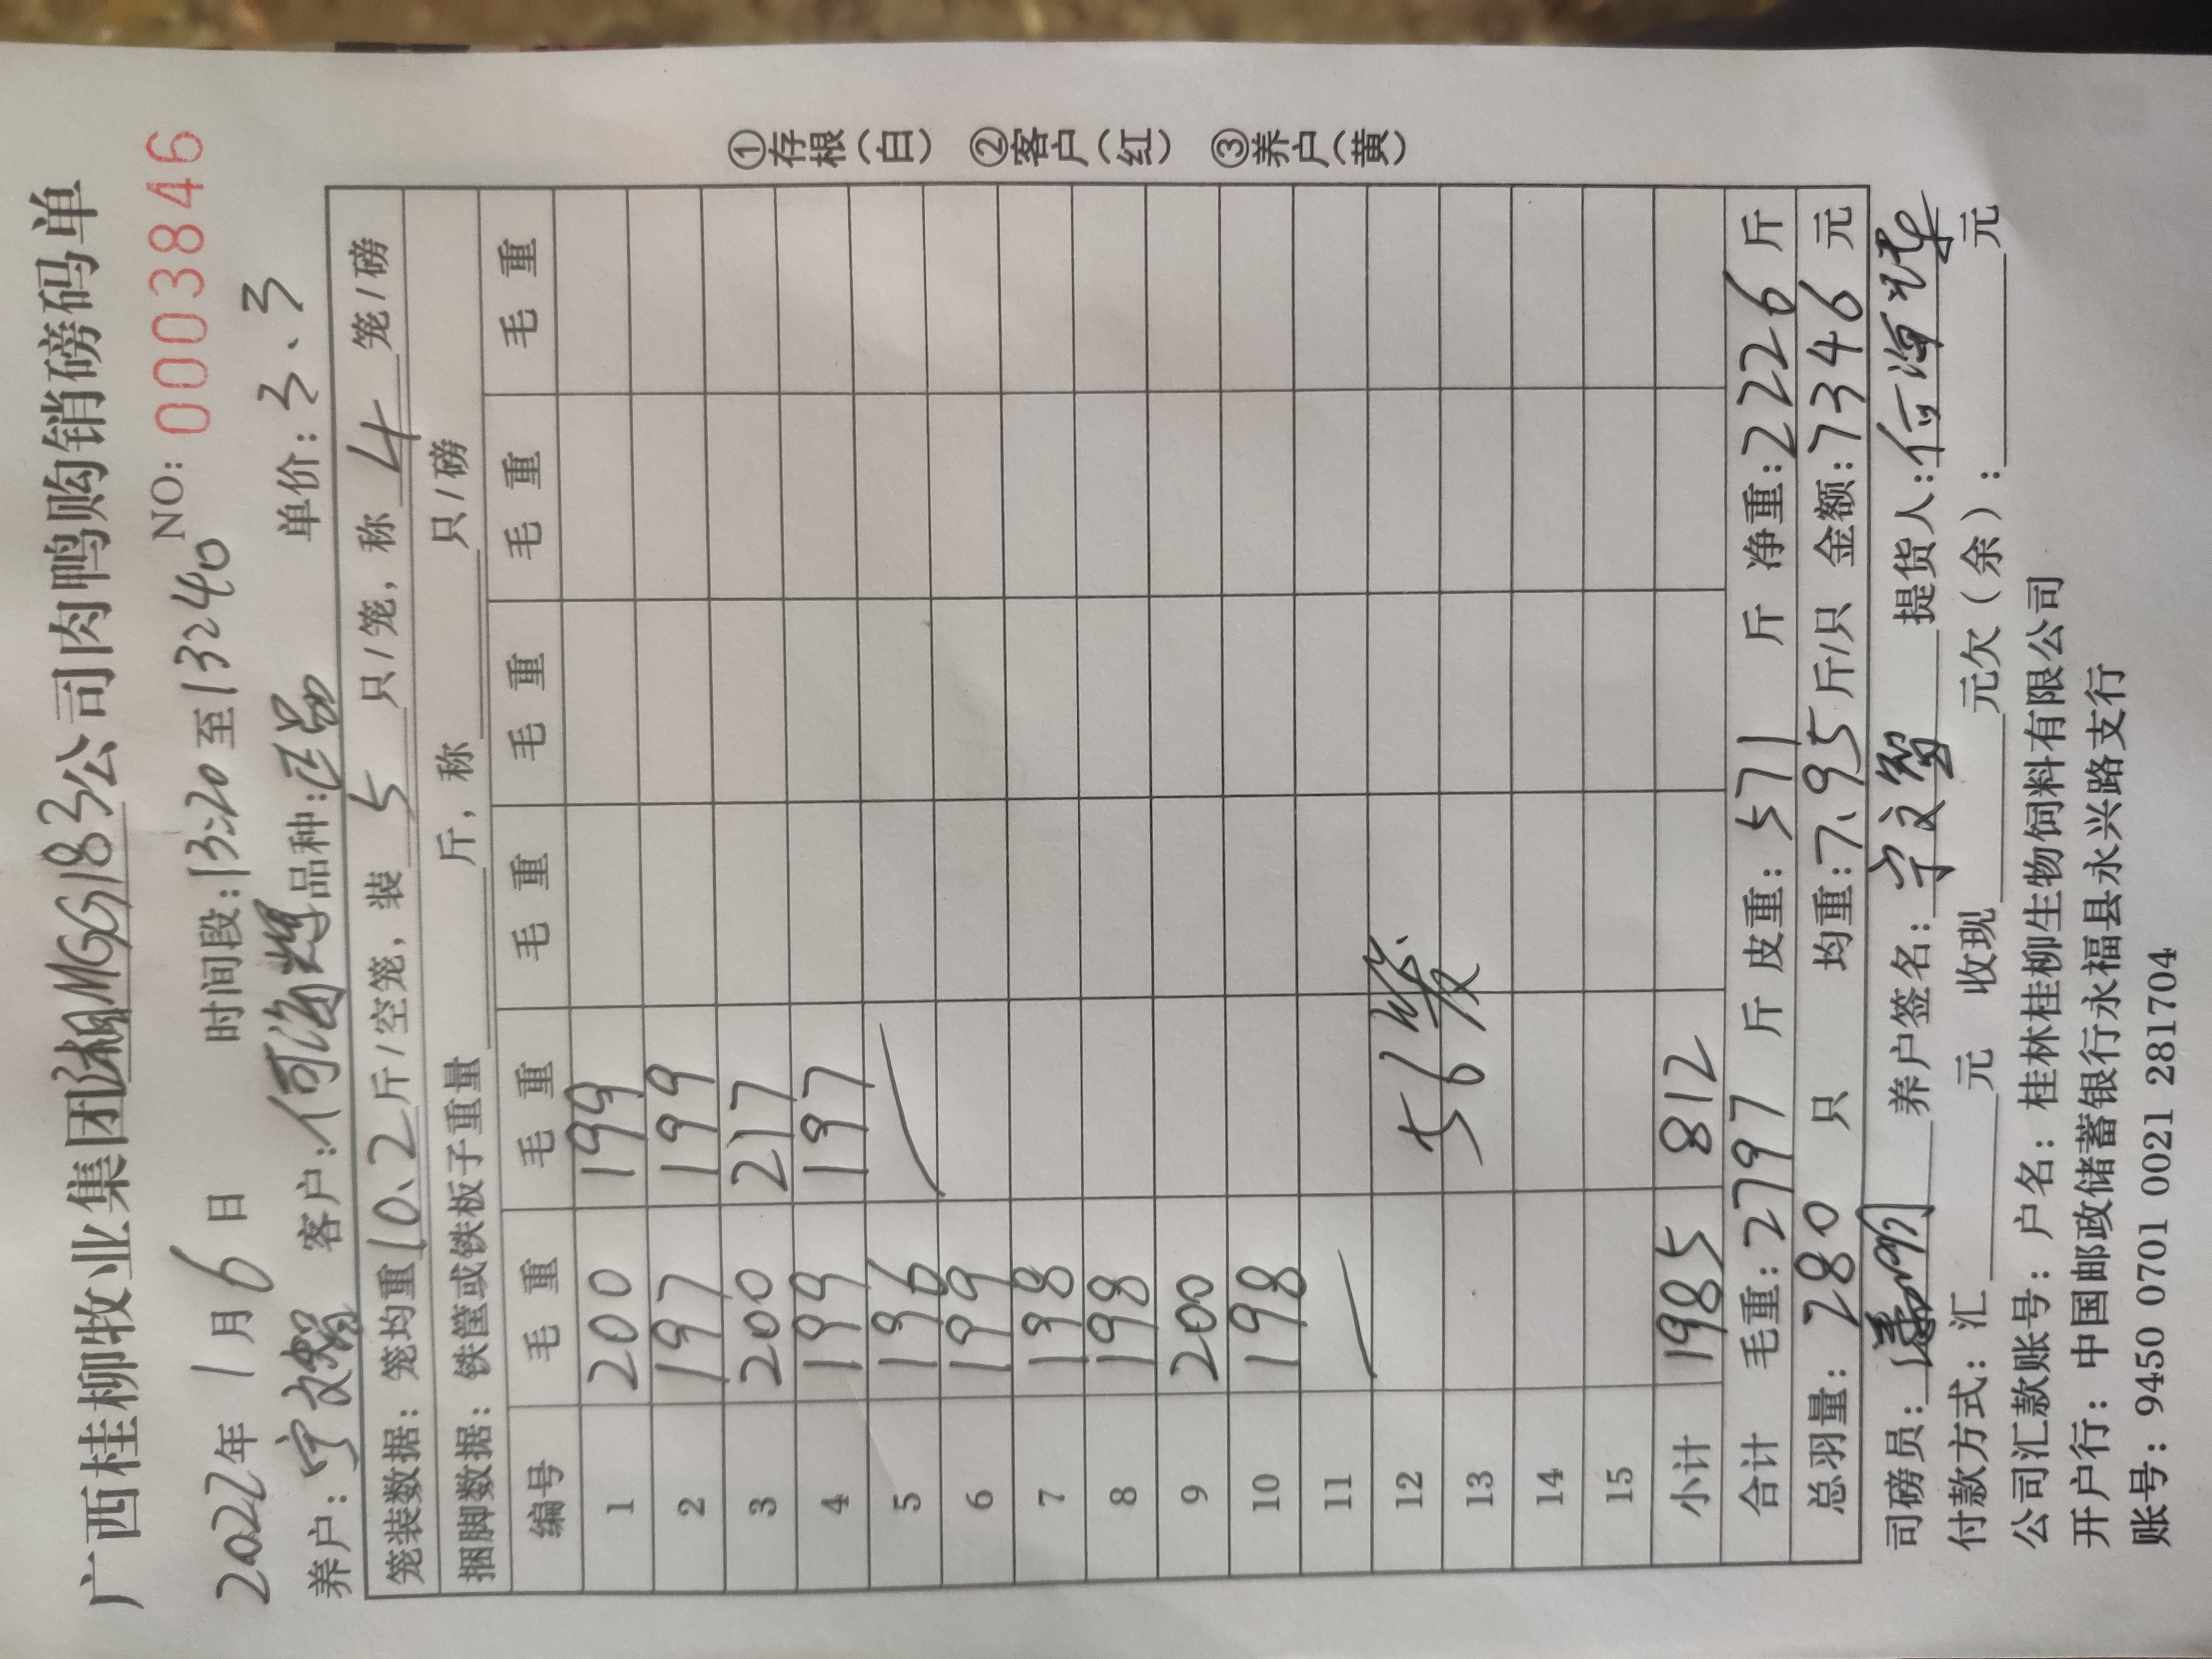 广西桂柳牧业集团湘MGG183公司肉鸭购销磅码单
2022年1月6日 时间段:13:20至13:40 NO: 0003846
养户:宁文智 客户:何海辉 品种: 单价:3、3
笼装数据:笼均重10、2斤/空笼,装5只/笼,称4笼/磅
捆脚数据:铁筐或铁板子重量 斤,称 只/磅
编号 毛重 毛重 毛重 毛重 毛重 毛重
1 200 199
2 197 199
3 200 217
4 199 197
5 196
6 199
7 198
8 198
9 200
10 198
11
12 56
13
14
15
小计 1985 812
合计 毛重:2797 斤 皮重:571 斤 净重:2226 斤
总羽量:280 只 均重:7.95斤/只 金额:7346元
司磅员: 养户签名:宁文智 提货人:何海辉
付款方式:汇 元 收现 元欠(余): 元
公司汇款账号:户名:桂林桂柳生物饲料有限公司
开户行:中国邮政储蓄银行永福县永兴路支行
账号:9450 0701 0021 281704
①存根(白) ②客户(红) ③养户(黄)